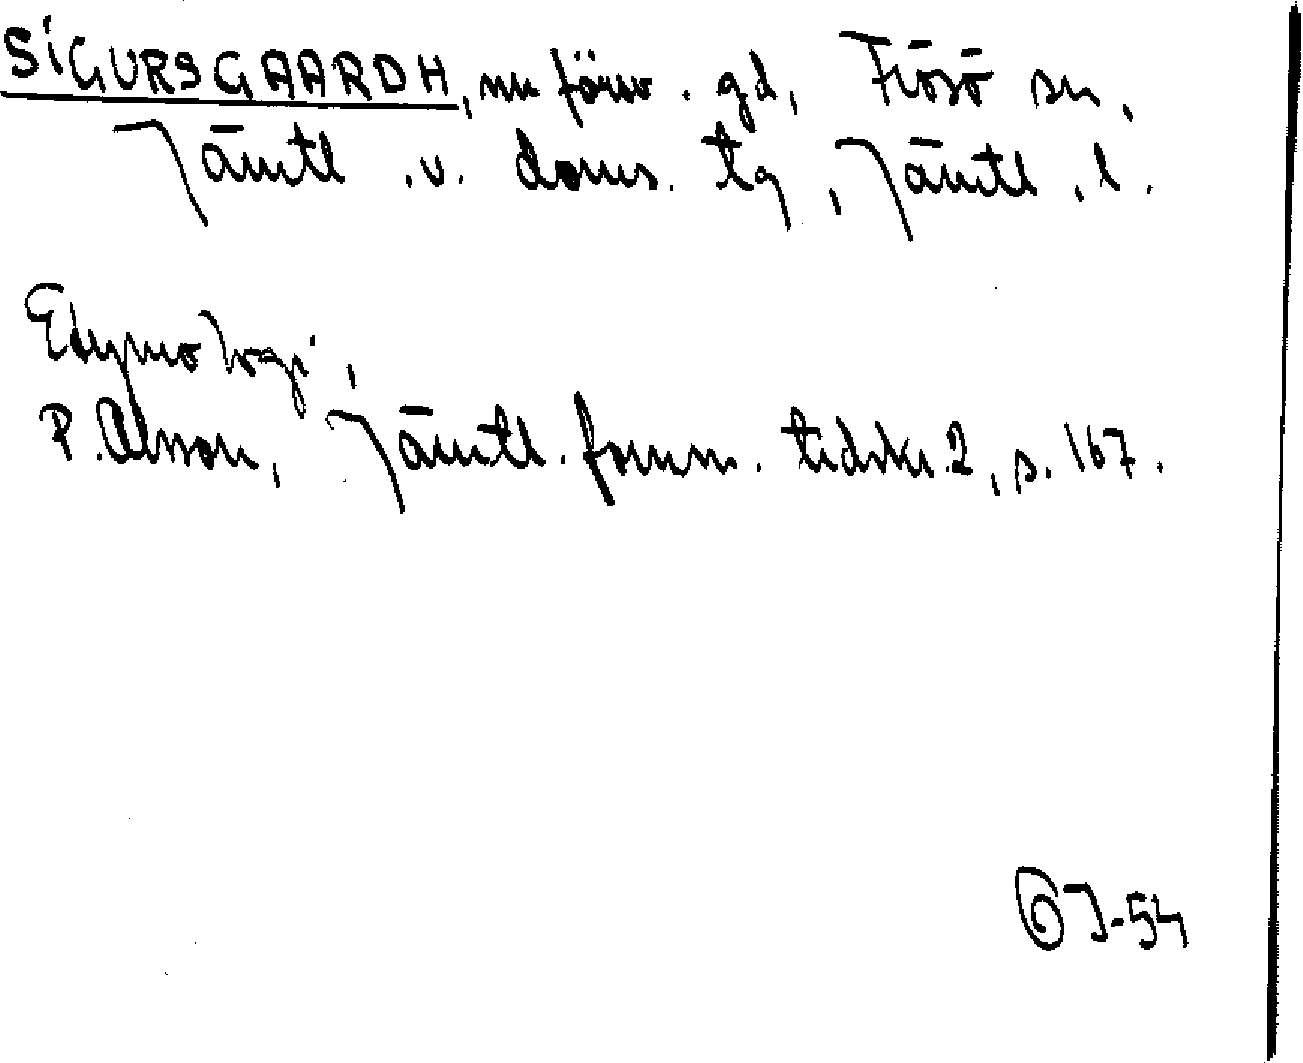 SIGURSGAARDH, nu försv. gd, Frösö sn,
Jämtl. v. doms. tg, Jämtl. l.
Etymologi,
P. Olsson, Jämtl. fornm. tidskr. 2, s. 167.
J-54